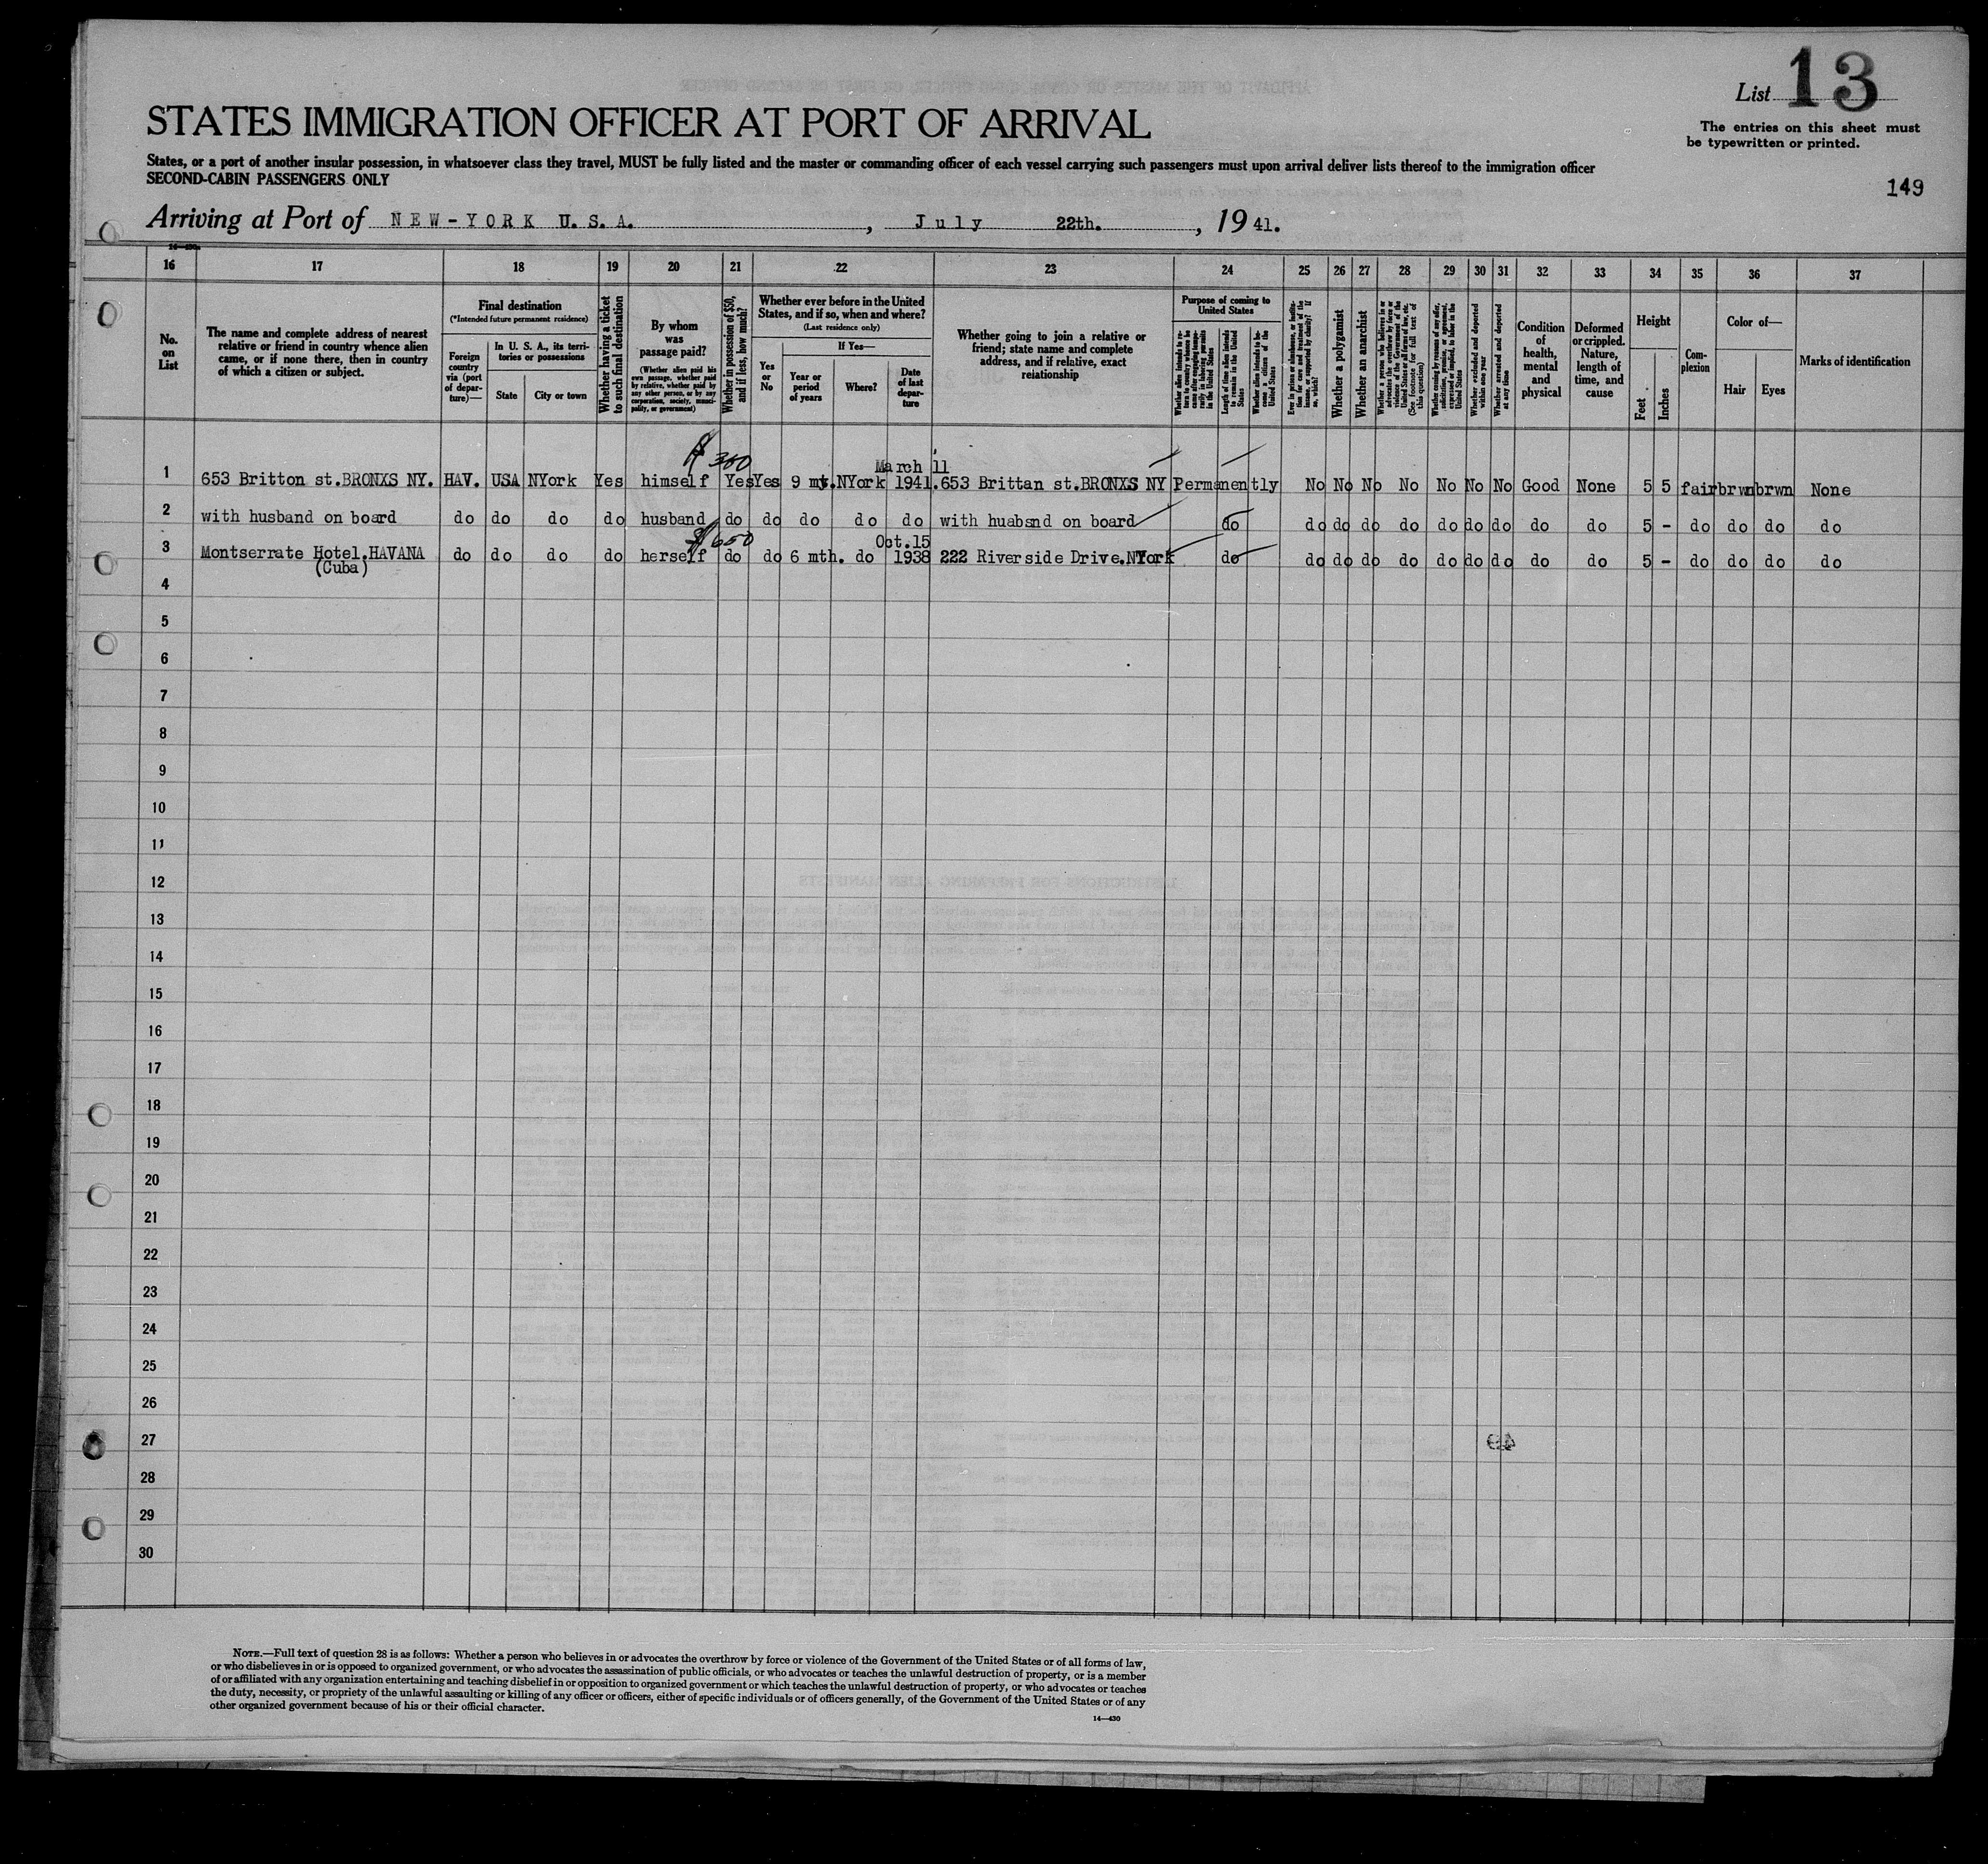 List 13
The entries on this sheet must
be typewritten or printed.
149
STATES IMMIGRATION OFFICER AT PORT OF ARRIVAL
States, or a port of another insular possession, in whatsoever class they travel, MUST be fully listed and the master or commanding officer of each vessel carrying such passengers must upon arrival deliver lists thereof to the immigration officer
SECOND-CABIN PASSENGERS ONLY
Arriving at Port of NEW-YORK U.S.A. , July 22th. , 1941.
16 17 18 19 20 21 22 23 24 25 26 27 28 29 30 31 32 33 34 35 36 37
No. on List
The name and complete address of nearest relative or friend in country whence alien came, or if none there, then in country of which a citizen or subject.
Final destination
(*Intended future permanent residence)
Foreign country via (port of departure)—
In U. S. A., its territories or possessions
State
City or town
Whether having a ticket to such final destination
By whom was passage paid?
(Whether alien paid his own passage, whether paid by relative, whether paid by any other person, or by any corporation, society, municipality, or government)
Whether in possession of $50, and if less, how much?
Whether ever before in the United States, and if so, when and where?
(Last residence only)
Yes or No
If Yes—
Year or period of years
Where?
Date of last departure
Whether going to join a relative or friend; state name and complete address, and if relative, exact relationship
Purpose of coming to United States
Length of time alien intends to remain in the United States
Whether alien intends to become a citizen of the United States
Whether a polygamist
Whether an anarchist
Whether excluded and deported within one year
Whether arrested and deported at any time
Condition of health, mental and physical
Deformed or crippled. Nature, length of time, and cause
Height
Feet
Inches
Complexion
Color of—
Hair
Eyes
Marks of identification
$ 300
March 11
1 653 Britton st.BRONXS NY. HAV. USA NYork Yes himself Yes Yes 9 my. NYork 1941. 653 Brittan st.BRONXS NY Permanently No No No No No No No Good None 5 5 fair brwn brwn None
2 with husband on board do do do do husband do do do do do with huabsnd on board do do do do do do do do do do 5 - do do do do
$ 650
Oct.15
3 Montserrate Hotel.HAVANA do do do do herself do do 6 mth. do 1938 222 Riverside Drive.NYork do do do do do do do do do do 5 - do do do do
(Cuba)
4
5
6
7
8
9
10
11
12
13
14
15
16
17
18
19
20
21
22
23
24
25
26
27
28
29
30
NOTE.—Full text of question 28 is as follows: Whether a person who believes in or advocates the overthrow by force or violence of the Government of the United States or of all forms of law,
or who disbelieves in or is opposed to organized government, or who advocates the assassination of public officials, or who advocates or teaches the unlawful destruction of property, or is a member
of or affiliated with any organization entertaining and teaching disbelief in or opposition to organized government or which teaches the unlawful destruction of property, or who advocates or teaches
the duty, necessity, or propriety of the unlawful assaulting or killing of any officer or officers, either of specific individuals or of officers generally, of the Government of the United States or of any
other organized government because of his or their official character.
14—430